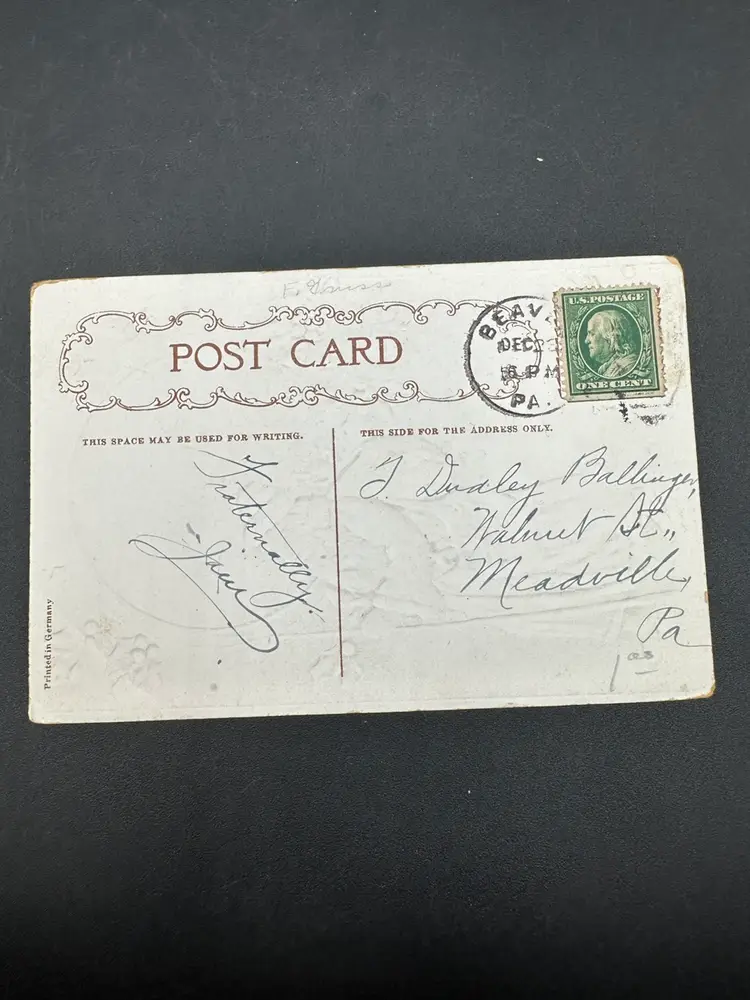 POST CARD
BEAV
DEC
PM
PA.
U.S. POSTAGE
ONE CENT
THIS SPACE MAY BE USED FOR WRITING.
THIS SIDE FOR THE ADDRESS ONLY.
Fraternally
Jim
Dudley Ballinger,
Walnut St.,
Meadville,
Pa
Printed in Germany